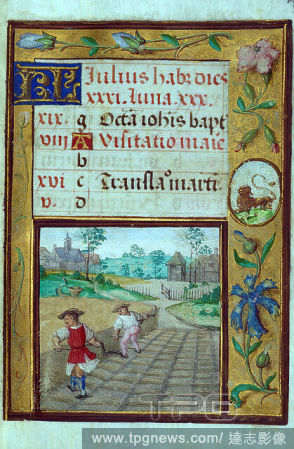 KL Julius habz dies
xxxi. luna. xxx.
xix. g Octa iohis bapt
viii A Visitatio marie
b
xvi c Transla° marti
v. d
TPG
www.tpgnews.com/ 達志影像